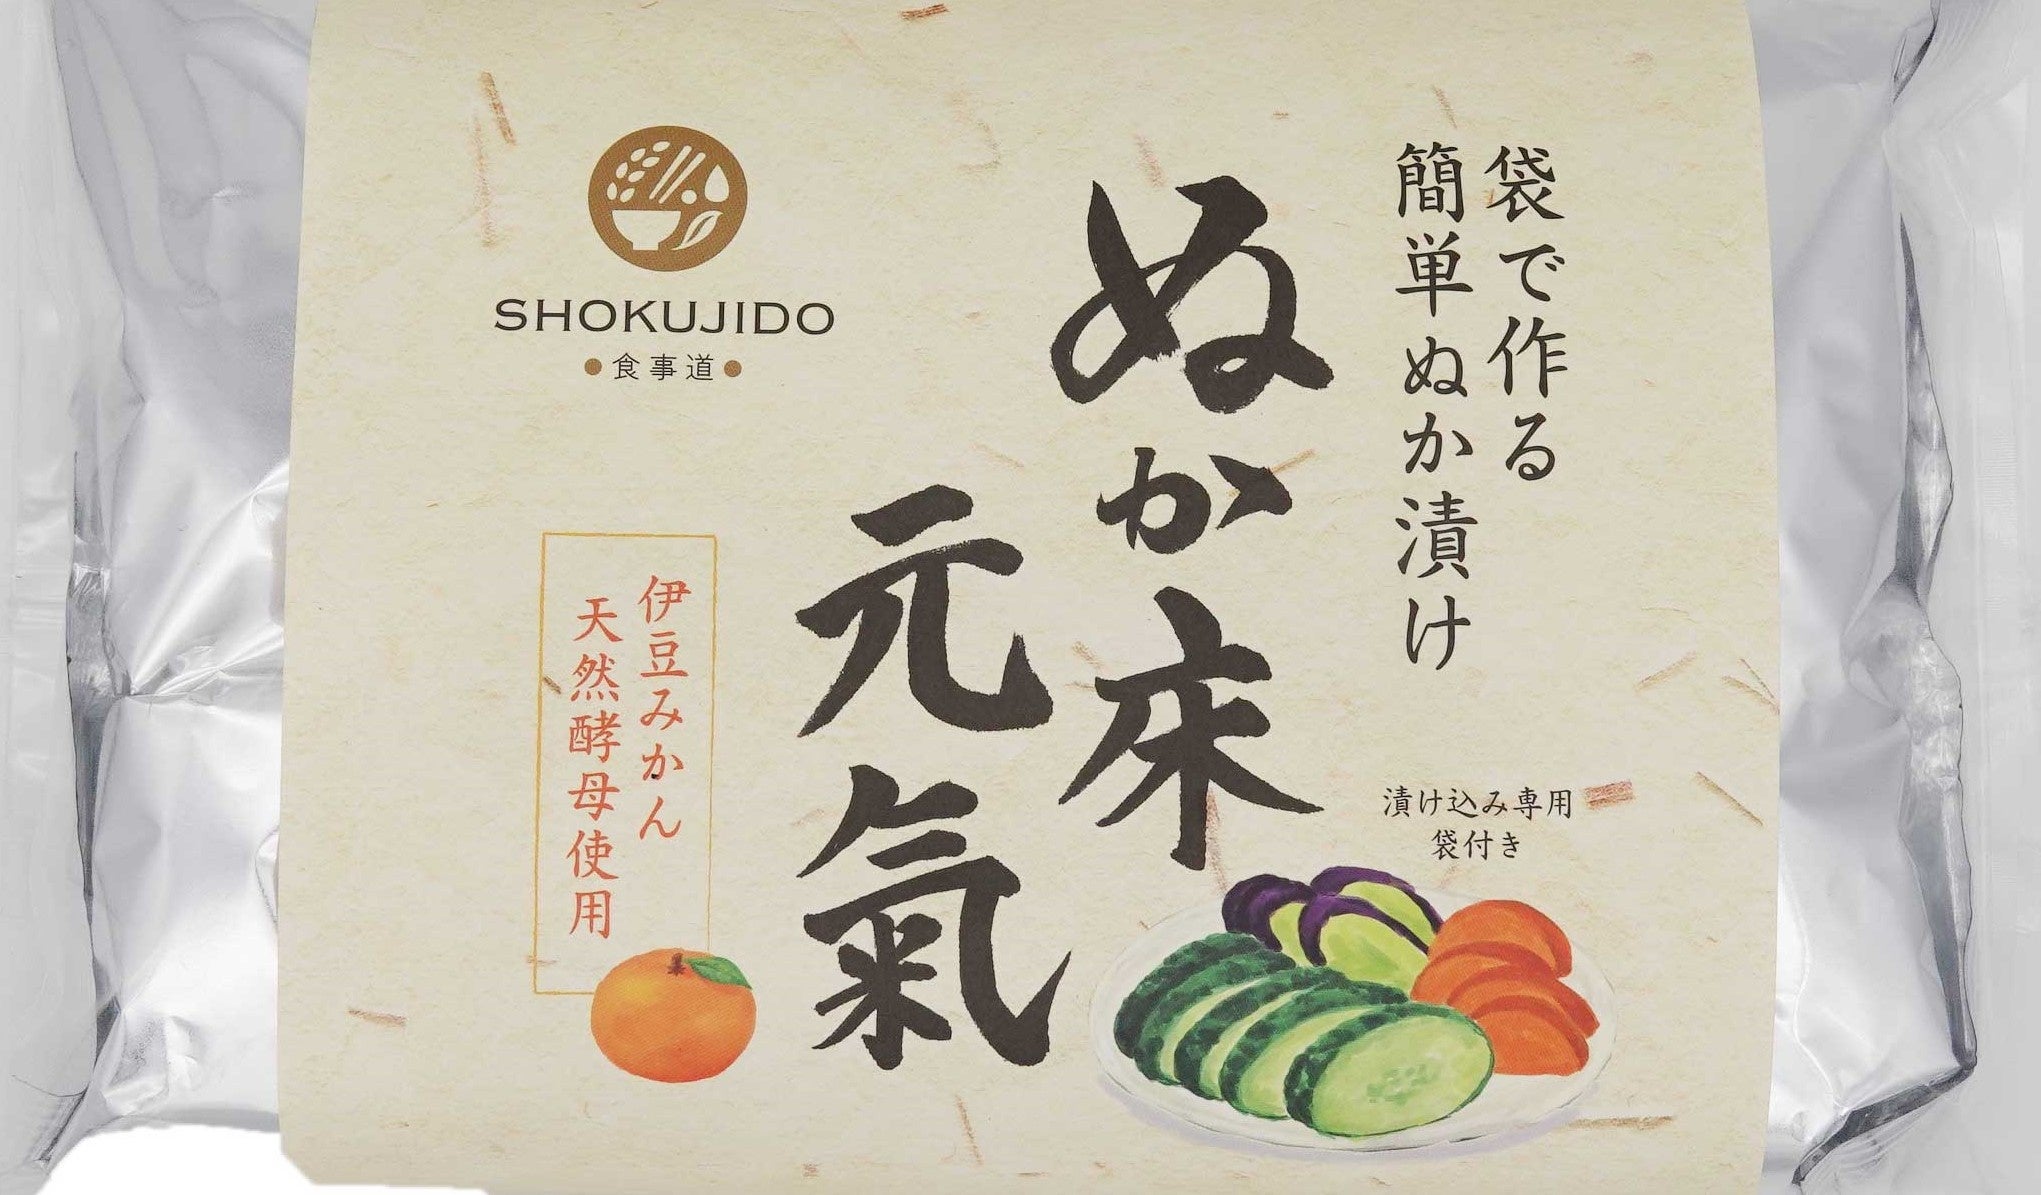 袋で作る
簡単ぬか漬け
ぬか床
元氣
SHOKUJIDO
●食事道●
伊豆みかん
天然酵母使用
漬け込み専用
袋付き